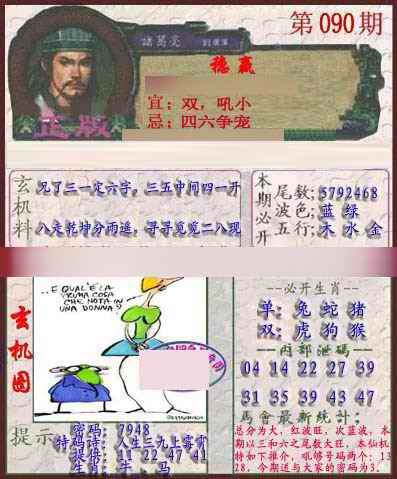 第090期
諸葛亮
稳赢
宜：双，吼小
忌：四六争宠
正版
玄机料
兄了三一定六字，三五中间四一开
八走乾坤分雨遥，寻寻觅觅二八现
本期必开
尾数：5792468
波色：蓝 绿
五行：木 水 金
玄机图
..E QUAL'E LA
PRIMA COSA
CHE NOTA IN
UNA DONNA?
--必开生肖--
单：兔 蛇 猪
双：虎 狗 猴
内部泄码
04 14 22 27 39
31 35 39 43 47
馬會最新統計：
总分为大，红波旺，次蓝波，本
期以三和六之尾数大旺，本仙机
特如下推介，吼够号码两个：13
28，今期送与大家的密码为3。
提示
密码：7948
特码诗：人生三九上雾霄
提供：11 22 47 41
生肖：牛，马